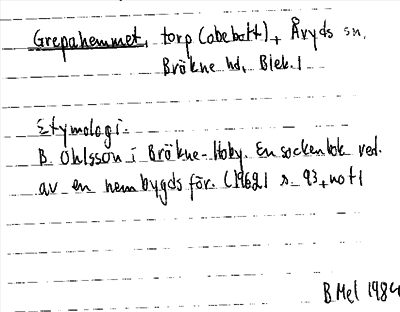 Grepahemmet, torp (obebott), Åryds sn,
Bräkne hd, Blek.l
Etymologi.
B. Ohlsson i Bräkne-Hoby. En sockenbok red.
av en hembygds för. (1962) s. 93 + not 1
B Mel 1984